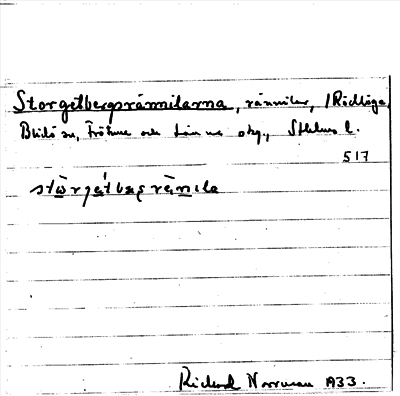 Storgetbergsrännilarna, rännilar, /Rödlöga,
Blidö sn, Frötuna och Länna skg., Sthlms l.
517
stōrgátbærränila
Richard Norrman 1933.